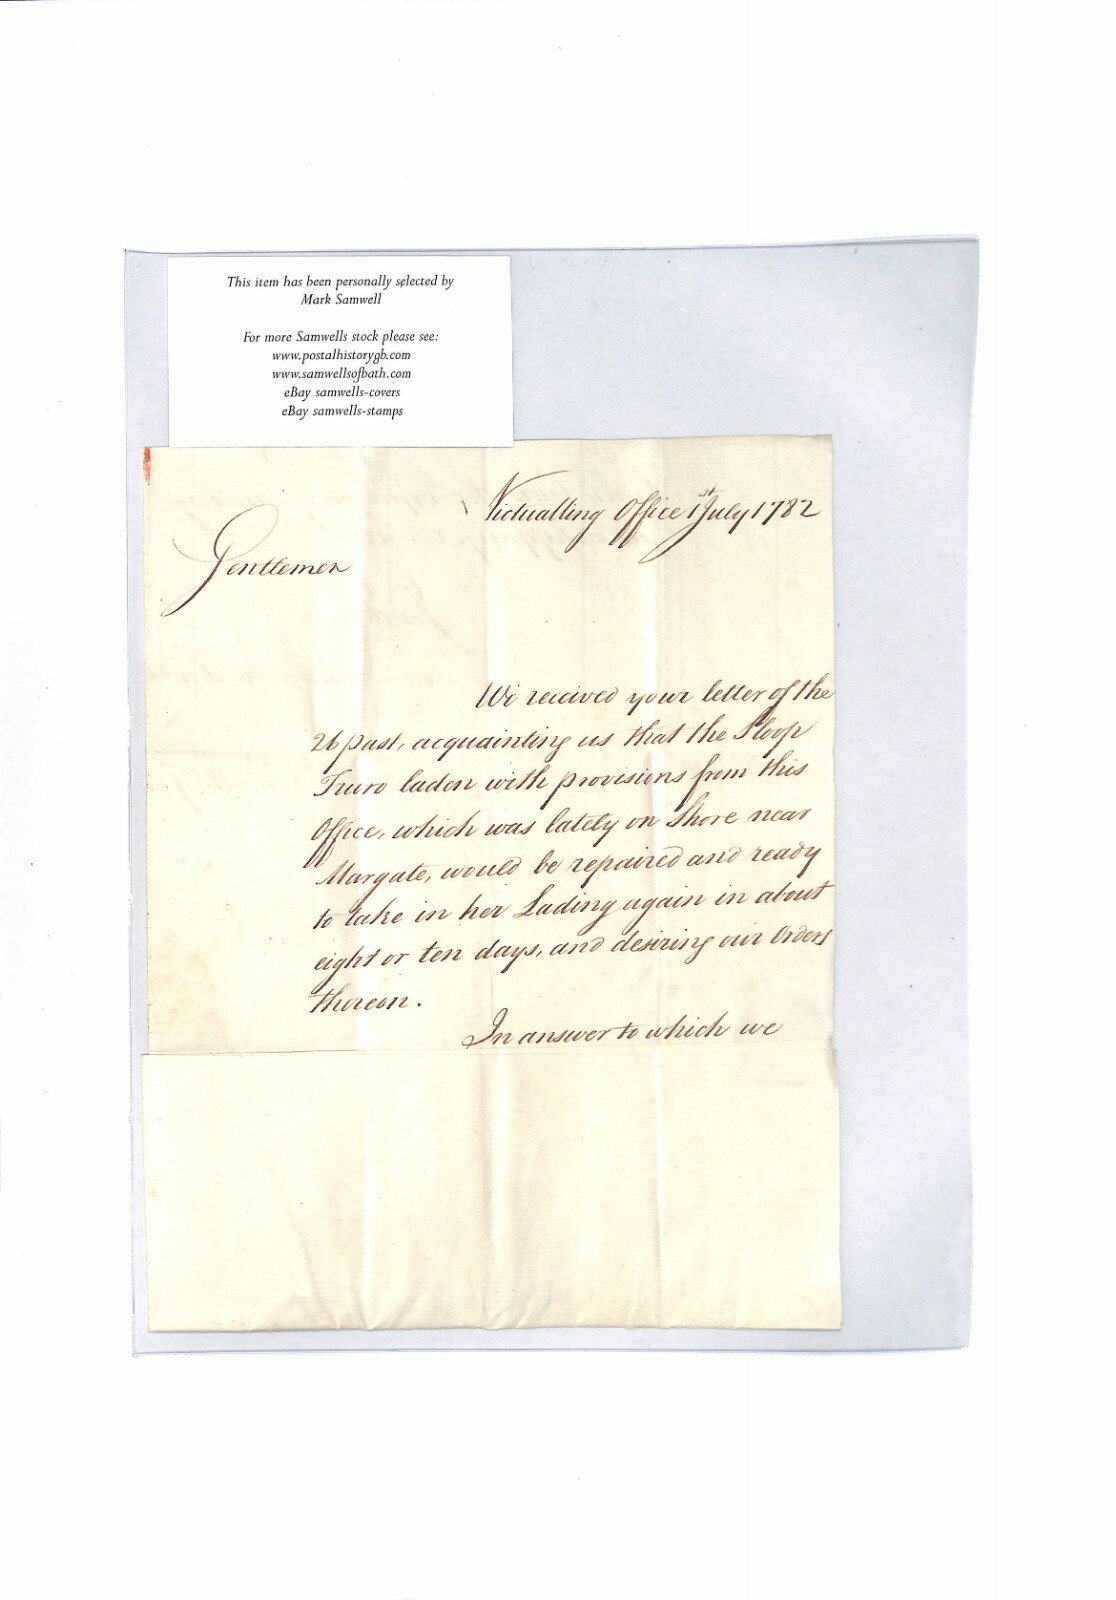 This item has been personally selected by
Mark Samwell
For more Samwells stock please see:
www.postalhistorygb.com
www.samwellsofbath.com
eBay samwells-covers
eBay samwells-stamps
Victualling Office 1st July 1782
Gentlemen
We received your letter of the
26 past, acquainting us that the Sloop
Truro laden with provisions from this
Office, which was lately on Shore near
Margate, would be repaired and ready
to take in her Lading again in about
eight or ten days, and desiring our Orders
thereon.
In answer to which we